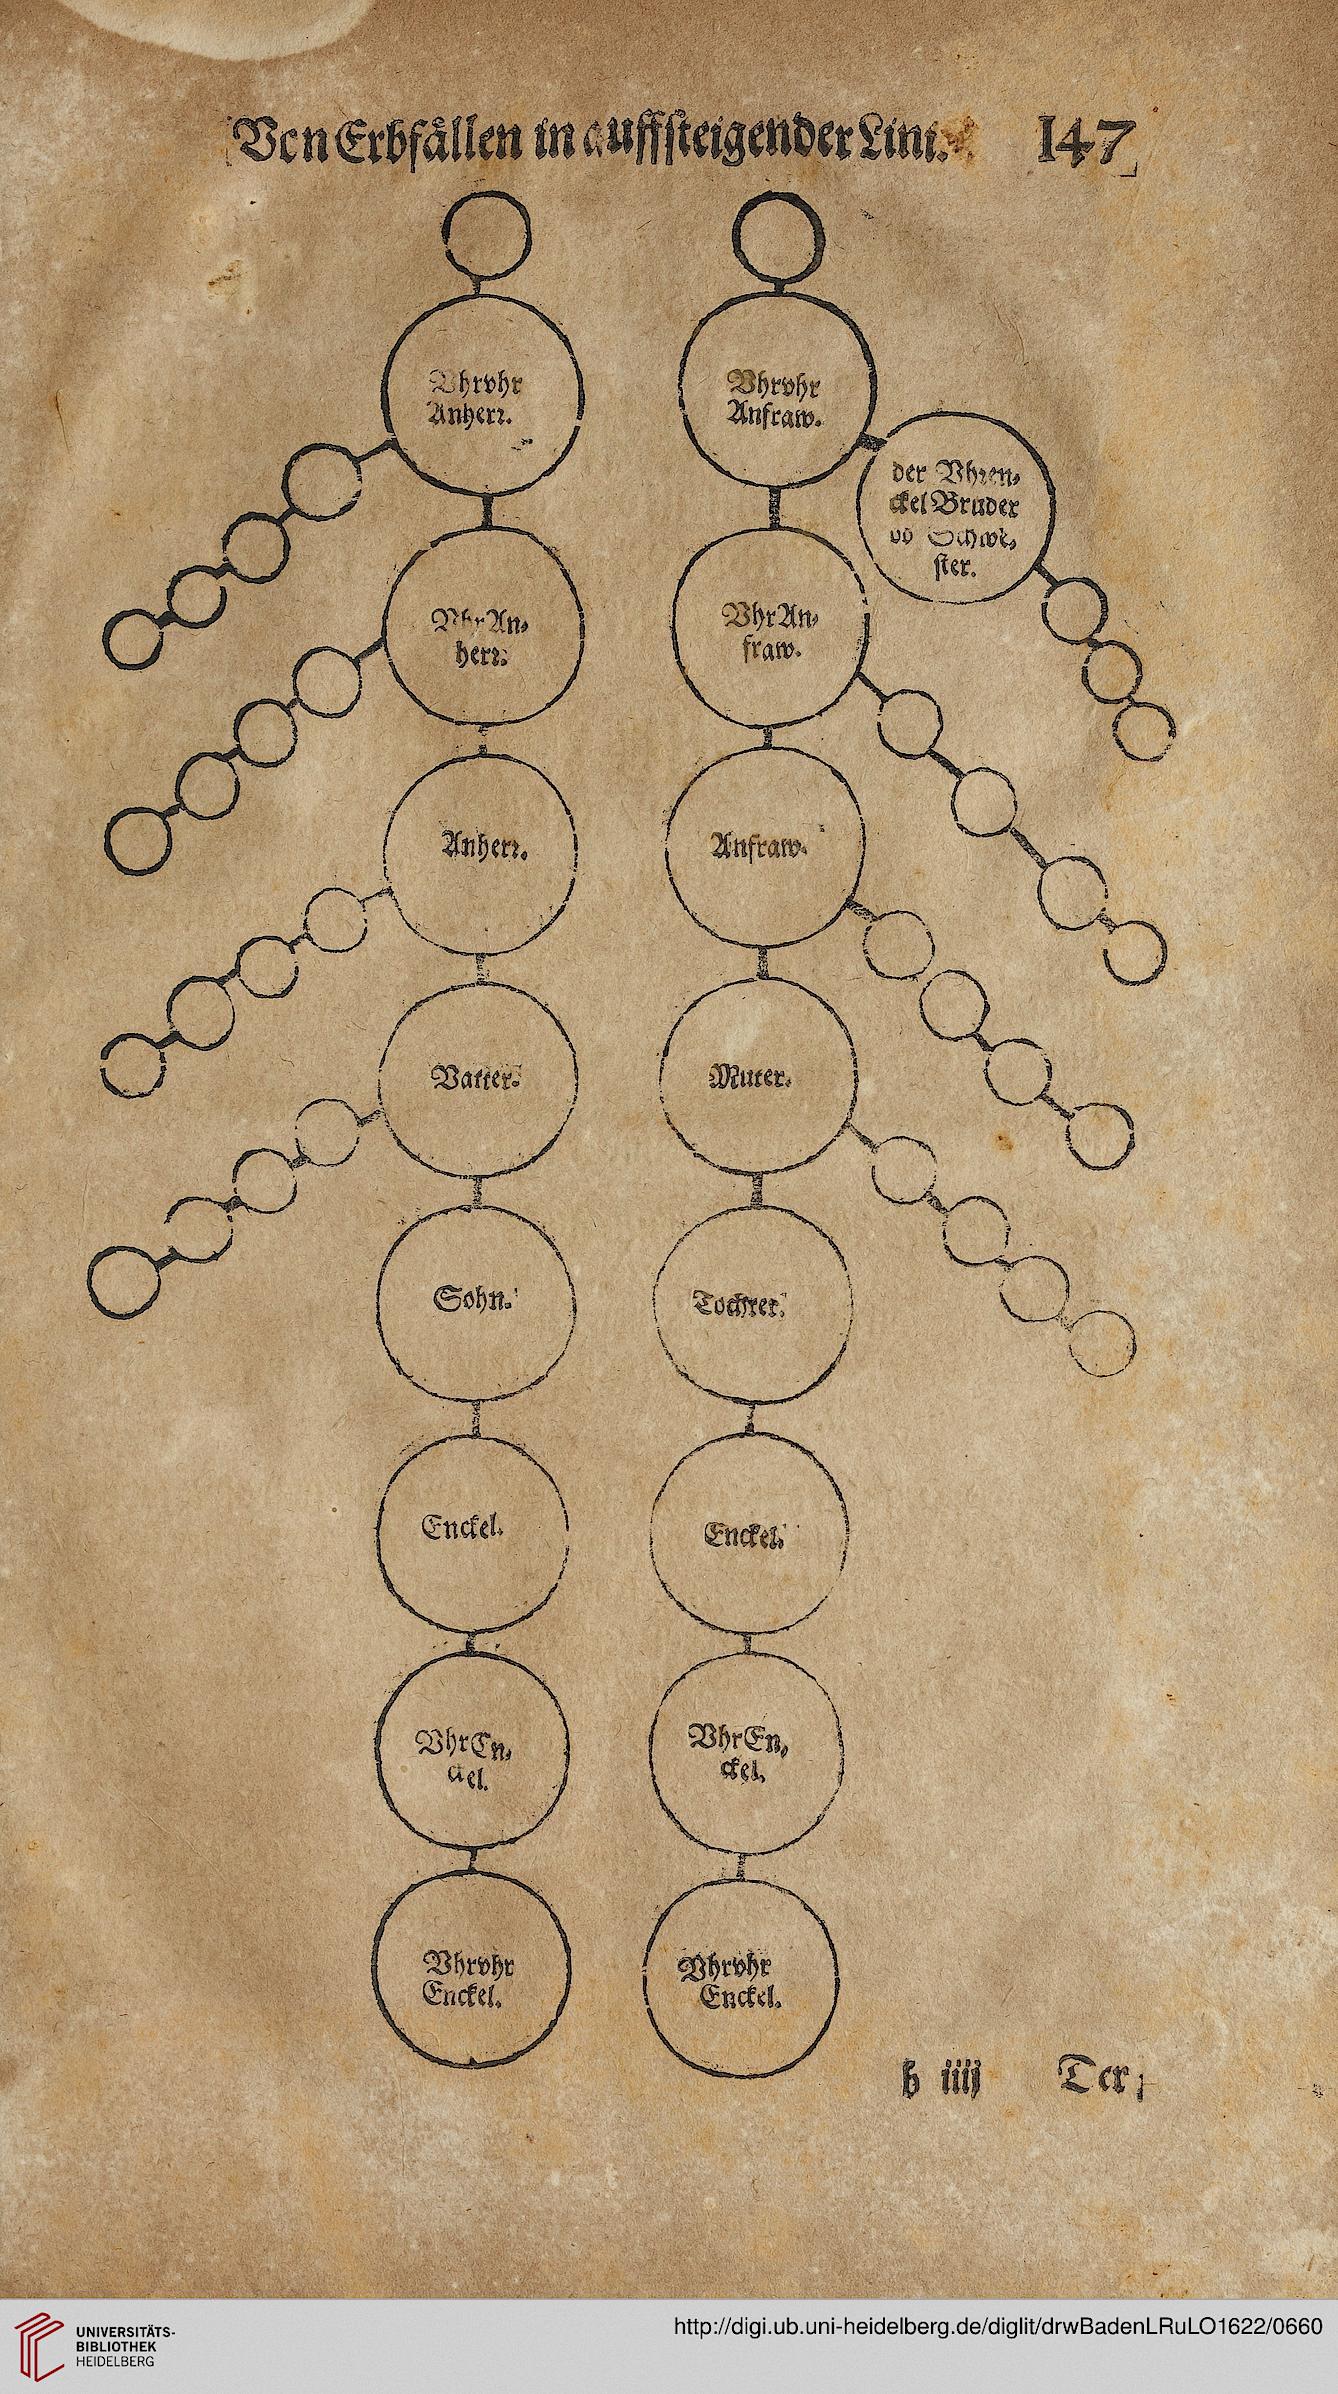 Von Erbfällen in auffsteigender Lini.
147
Vhrvhr
Anherr.
Vhrvhr
Anfraw.
der Vhren⸗
ckel Bruder
vñ Schwe⸗
ster.
VhrAn⸗
herr.
VhrAn⸗
fraw.
Anherr.
Anfraw.
Vatter.
Muter.
Sohn.
Tochter.
Enckel.
Enckel.
VhrEn⸗
ckel.
VhrEn⸗
ckel.
Vhrvhr
Enckel.
Vhrvhr
Enckel.
h iiij
Ter⸗
UNIVERSITÄTS-
BIBLIOTHEK
HEIDELBERG
http://digi.ub.uni-heidelberg.de/diglit/drwBadenLRuLO1622/0660